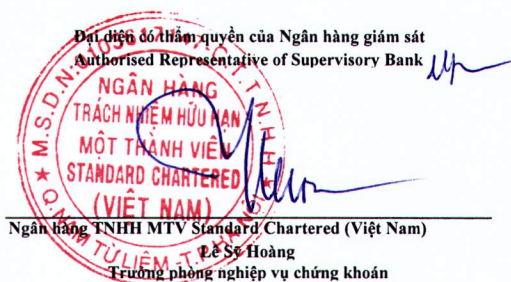 Đại diện có thẩm quyền của Ngân hàng giám sát
Authorised Representative of Supervisory Bank
NGÂN HÀNG
TRÁCH NHIỆM HỮU HẠN
MỘT THÀNH VIÊN
STANDARD CHARTERED
(VIỆT NAM)
Ngân hàng TNHH MTV Standard Chartered (Việt Nam)
Lê Sỹ Hoàng
Trưởng phòng nghiệp vụ chứng khoán